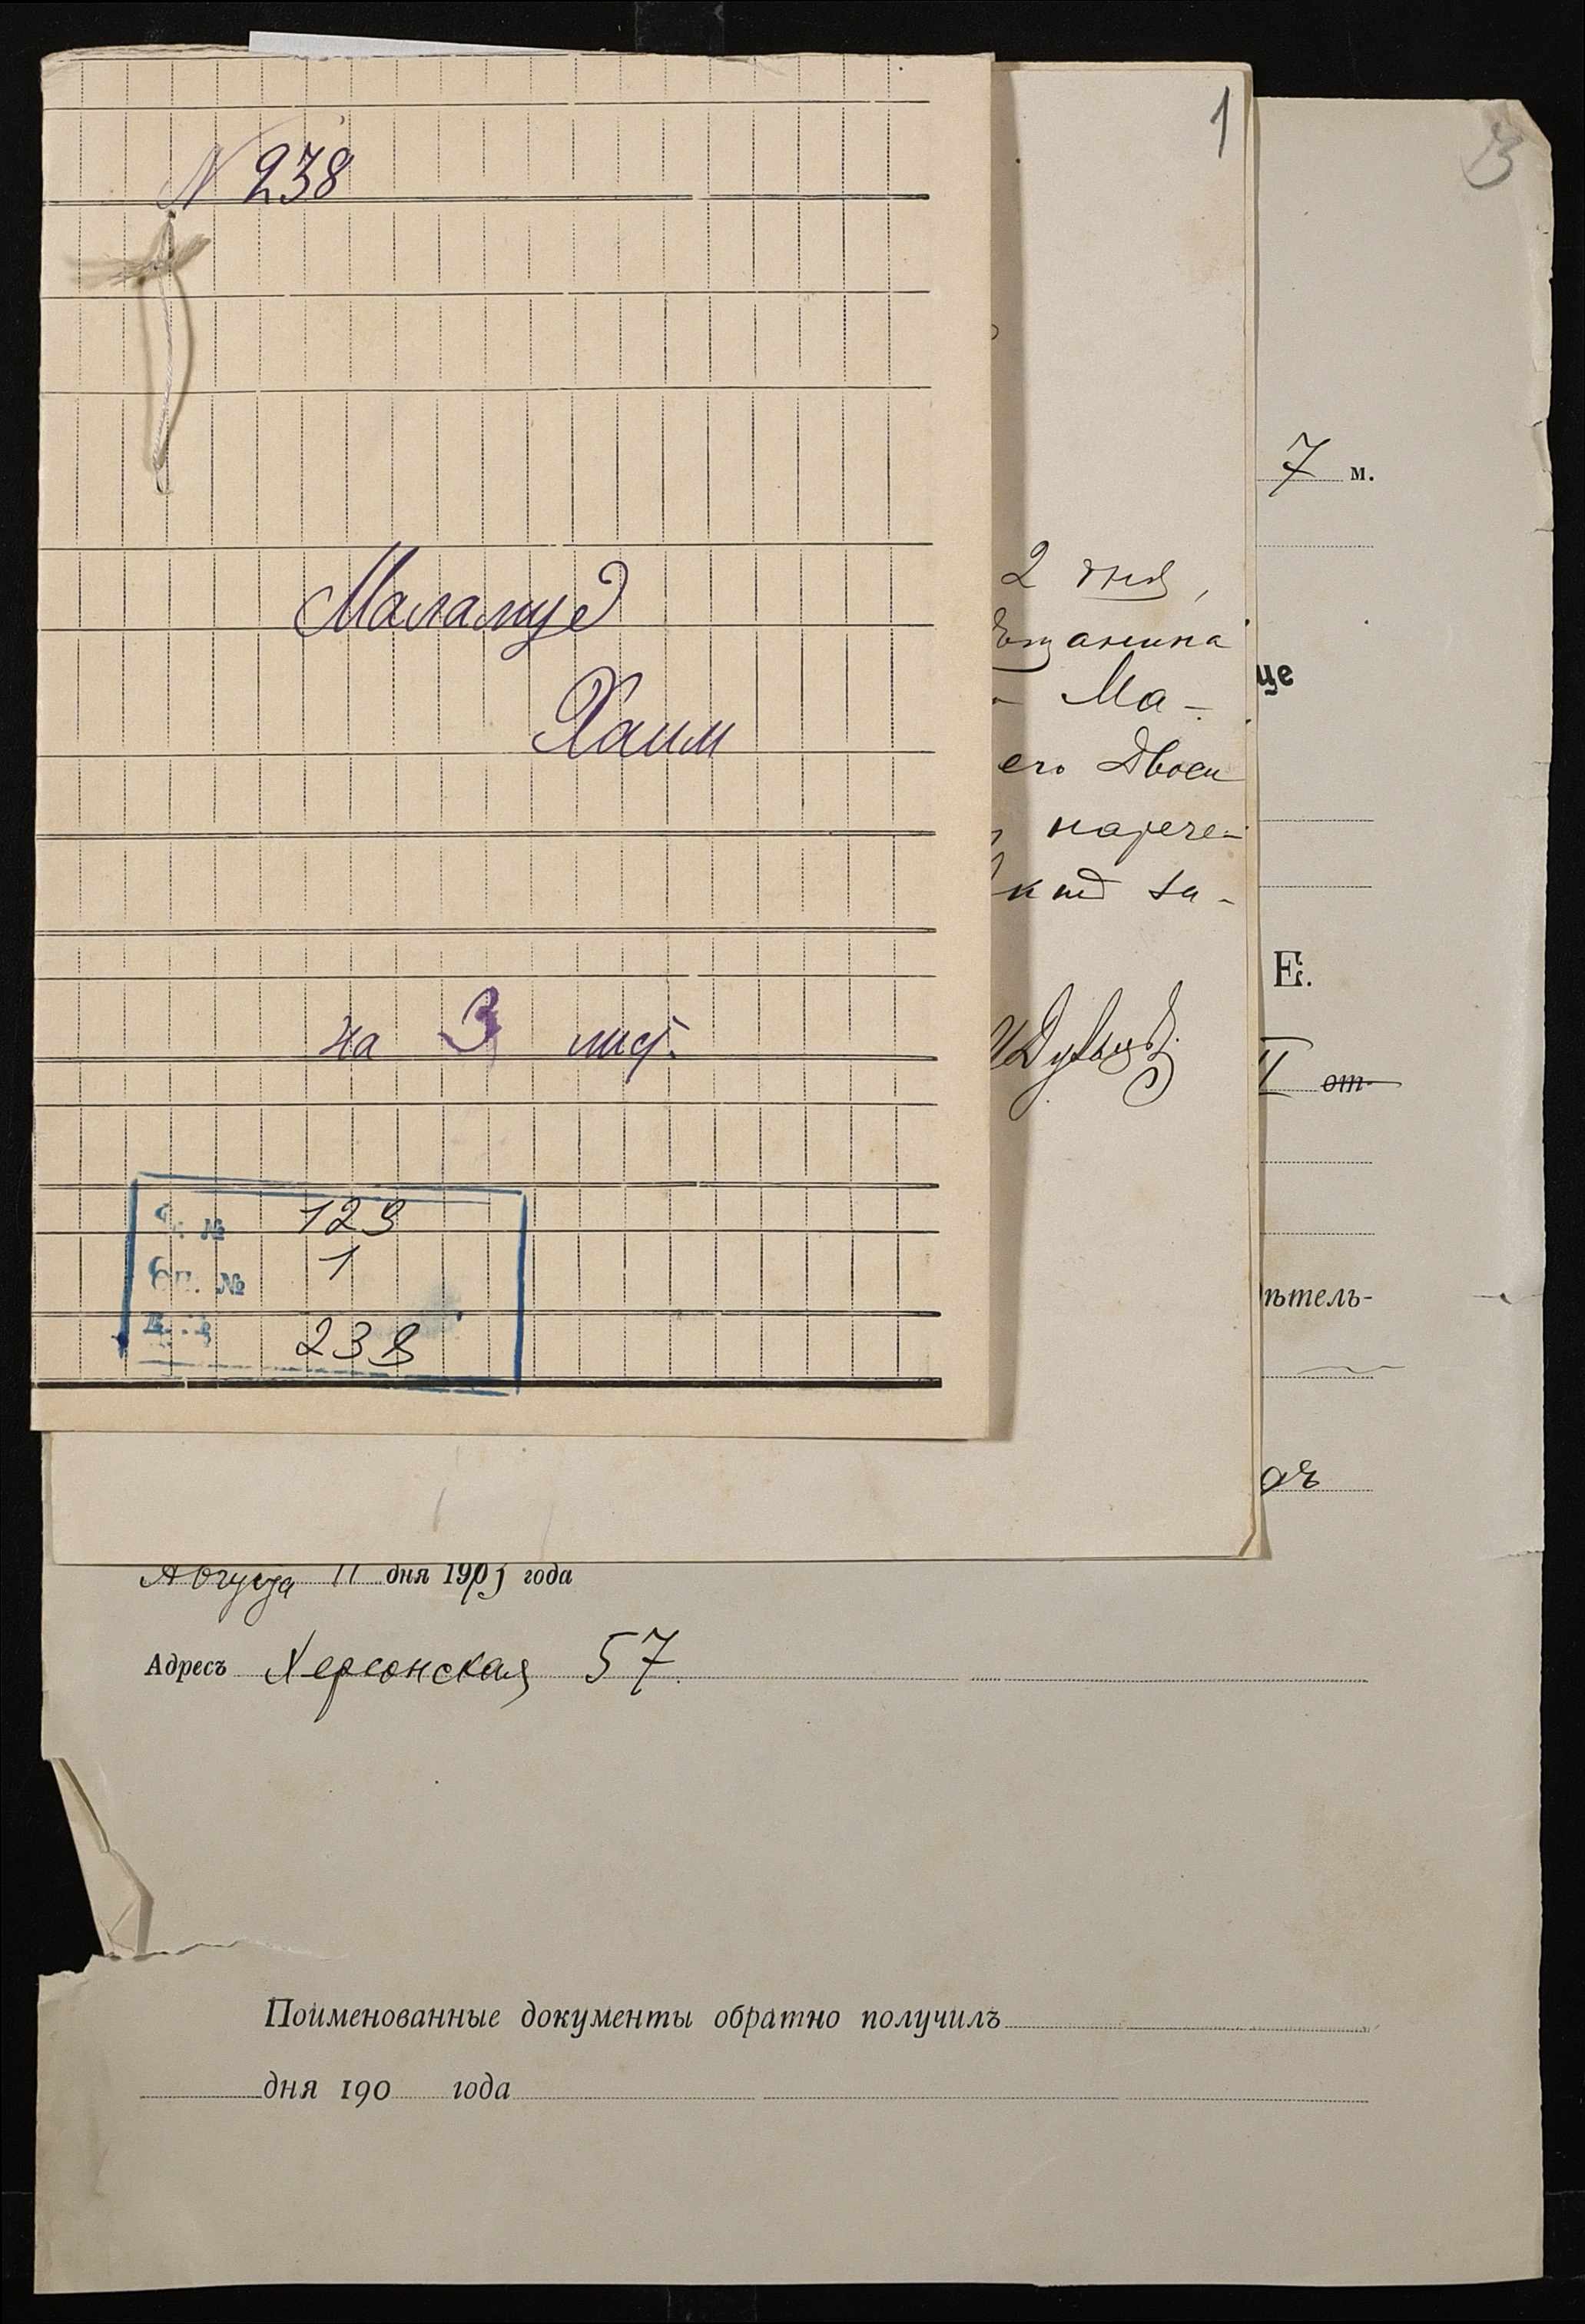 N 238
Маламуд
Хаим
на 3 лист.
№ 129
Оп. № 1
238
1
2 дня,
ѣщанина
Ма-
его Двоси
нарече-
за-
3
7 м.
це
Е.
II от-
ѣтель-
Августа 11 дня 1905 года
Адресъ Херсонская 57.
Поименованные документы обратно получилъ
дня 190 года